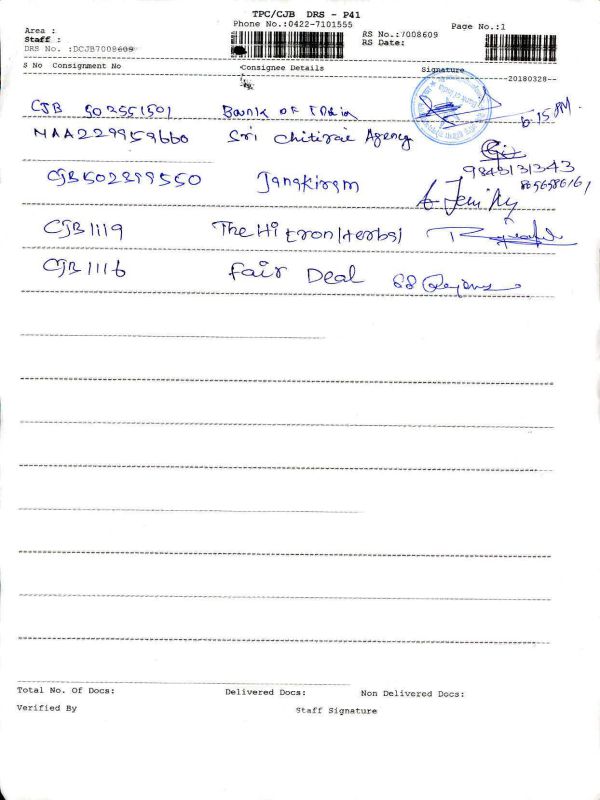 TPC/CJB DRS - P41
Phone No.:0422-7101555 Page No.:1
Area : RS No.:7008609
Staff : RS Date:
DRS No. :DCJB7008609
S No Consignment No Consignee Details Signature
20180328
CJB 502551501 Bank of India 6.15 PM.
MAA229959660 Sri Chitirai Agency
9843131343
CJB502899550 Janakiram
CJB1119 The Hi tron (Herbs)
CJB1116 Fair Deal
Total No. Of Docs: Delivered Docs: Non Delivered Docs:
Verified By Staff Signature